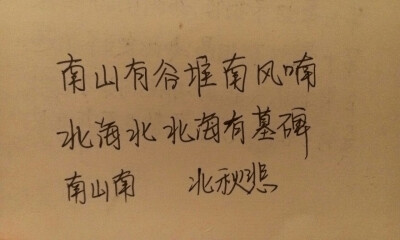 南山有谷堆南风喃
北海北 北海有墓碑
南山南 北秋悲